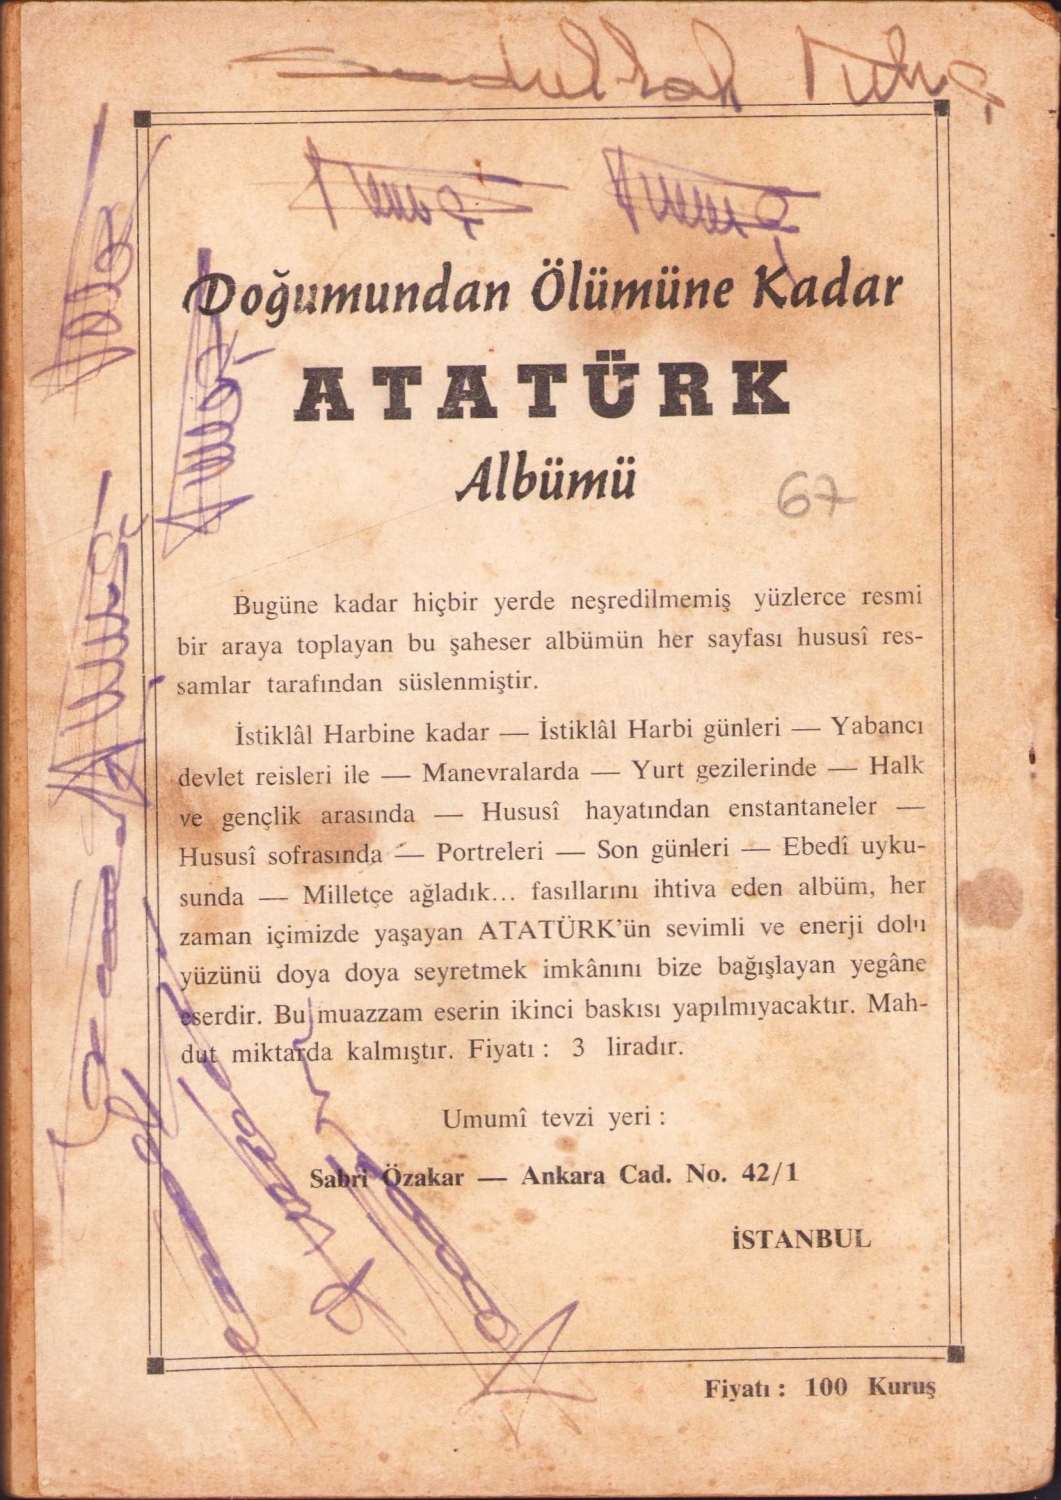 Doğumundan Ölümüne Kadar
ATATÜRK
Albümü
67
Bugüne kadar hiçbir yerde neşredilmemiş yüzlerce resmi
bir araya toplayan bu şaheser albümün her sayfası hususî res-
samlar tarafından süslenmiştir.
İstiklâl Harbine kadar — İstiklâl Harbi günleri — Yabancı
devlet reisleri ile — Manevralarda — Yurt gezilerinde — Halk
ve gençlik arasında — Hususî hayatından enstantaneler —
Hususî sofrasında — Portreleri — Son günleri — Ebedî uyku-
sunda — Milletçe ağladık... fasıllarını ihtiva eden albüm, her
zaman içimizde yaşayan ATATÜRK'ün sevimli ve enerji dolu
yüzünü doya doya seyretmek imkânını bize bağışlayan yegâne
eserdir. Bu muazzam eserin ikinci baskısı yapılmıyacaktır. Mah-
dut miktarda kalmıştır. Fiyatı : 3 liradır.
Umumî tevzi yeri :
Sabri Özakar — Ankara Cad. No. 42/1
İSTANBUL
Fiyatı : 100 Kuruş